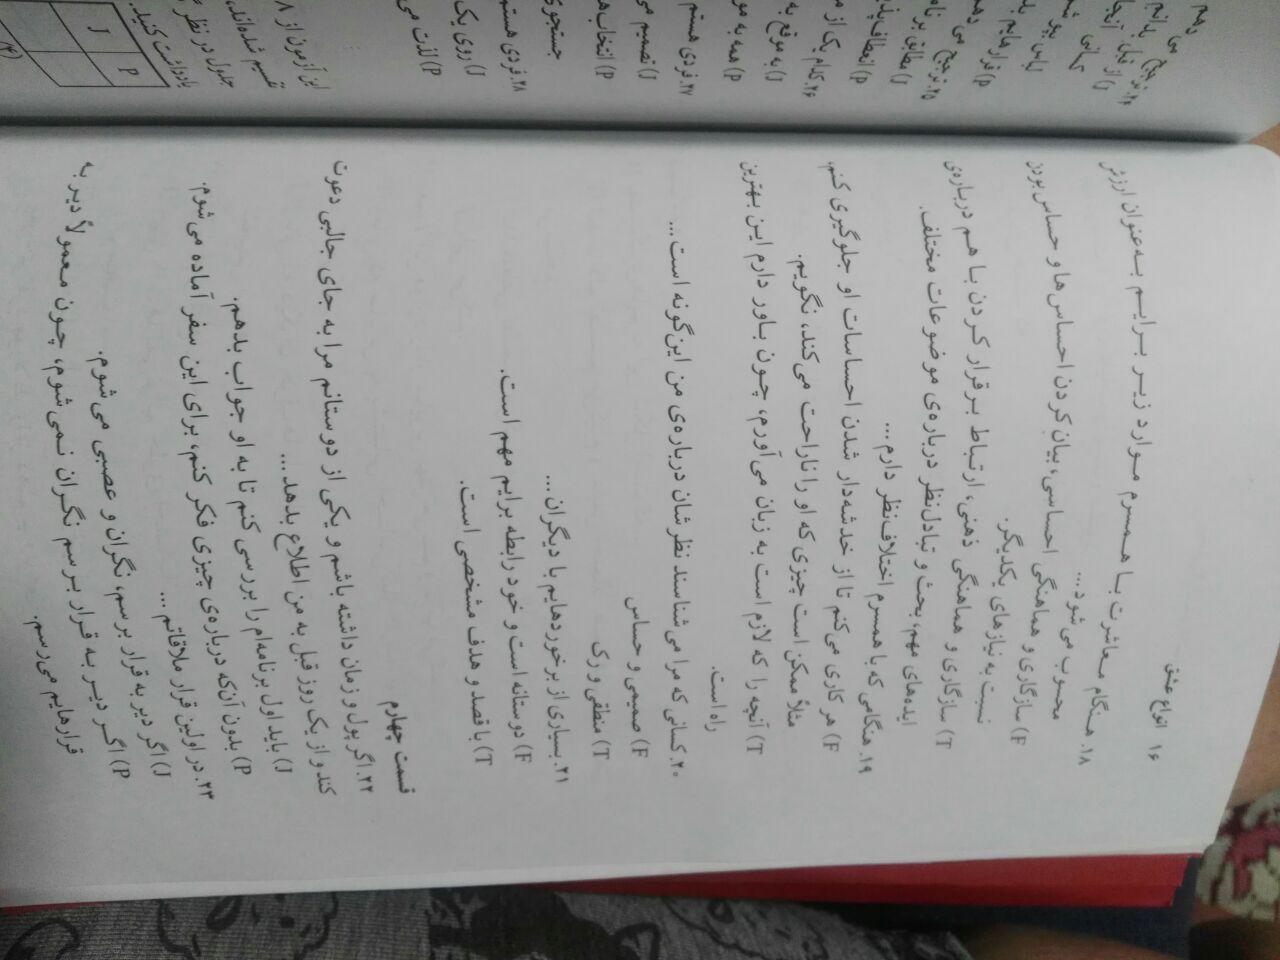 ۱۶ انواع عشق
۱۸. هنگام معاشرت با همسرم موارد زیر برایم به‌عنوان ارزش
محسوب می‌شود...
F) سازگاری و هماهنگی احساسی، بیان کردن احساس‌ها و حساس بودن
نسبت به نیازهای یکدیگر.
T) سازگاری و هماهنگی ذهنی، ارتباط برقرار کردن با هم درباره‌ی
ایده‌های مهم، بحث و تبادل‌نظر درباره‌ی موضوعات مختلف.
۱۹. هنگامی که با همسرم اختلاف‌نظر دارم...
F) هر کاری می‌کنم تا از خدشه‌دار شدن احساسات او جلوگیری کنم،
مثلاً ممکن است چیزی که او را ناراحت می‌کند، نگویم.
T) آنچه را که لازم است به زبان می‌آورم، چون باور دارم این بهترین
راه است.
۲۰. کسانی که مرا می‌شناسند نظرشان درباره‌ی من این‌گونه است...
F) صمیمی و حساس
T) منطقی و رک
۲۱. بسیاری از برخوردهایم با دیگران...
F) دوستانه است و خود رابطه برایم مهم است.
T) با قصد و هدف مشخصی است.
قسمت چهارم
۲۲. اگر پول و زمان داشته باشم و یکی از دوستانم مرا به جای جالبی دعوت
کند و از یک روز قبل به من اطلاع بدهد...
J) باید اول برنامه‌ام را بررسی کنم تا به او جواب بدهم.
P) بدون آن‌که درباره‌ی چیزی فکر کنم، برای این سفر آماده می‌شوم.
۲۳. در اولین قرار ملاقاتم ...
J) اگر دیر به قرار برسم، نگران و عصبی می‌شوم.
P) اگر دیر به قرار برسم نگران نمی‌شوم، چون معمولاً دیر به
قرارهایم می‌رسم.
می دهم
۲۴. ترجیح
J) از قبل
P) قرارهایم
۲۵. ترجیح می دهم
J) مطابق برنامه
P)
۲۶. کدام یک از
J) به موقع به
P) همه به
۲۷. فردی هستم
J) تصمیم
P)
جستجوی
۲۸. فردی هستم
J) روی یک
P) لذت
این آزمون از ۸
تقسیم شده‌اند،
جدول در نظر
یادداشت کنید.
J P
(۴)